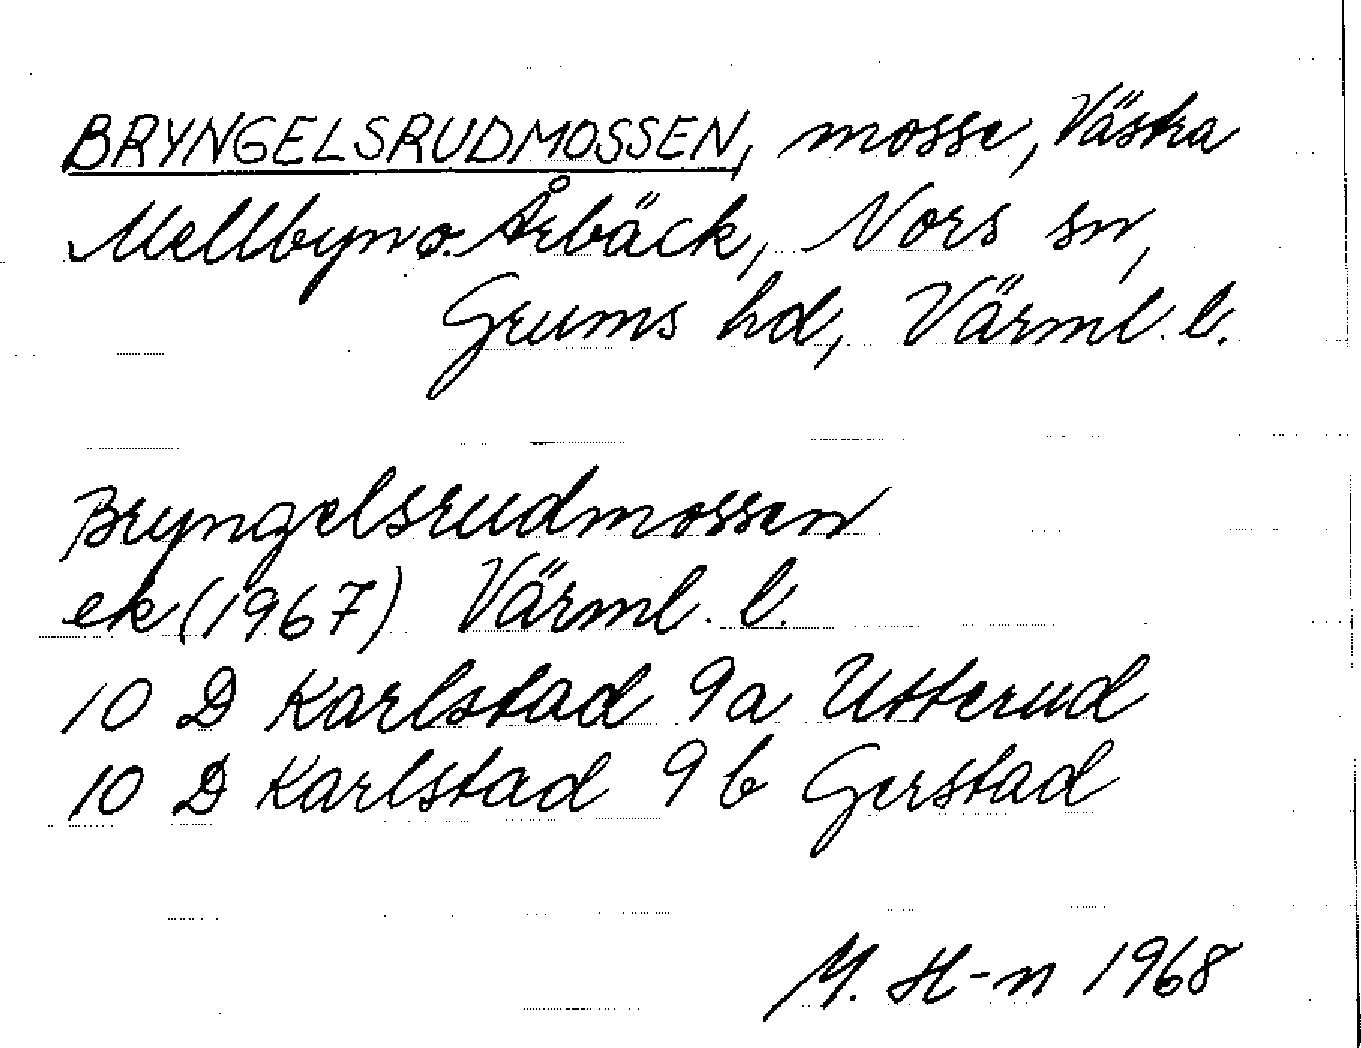 BRYNGELSRUDMOSSEN, mosse, Västra
Mellbyn o. Årbäck, Nors sn,
Grums hd, Värml. l.
Bryngelsrudmossen
ek (1967) Värml. l.
10 D Karlstad 9a Utterud
10 D Karlstad 9 b Gerstad
M. H-n 1968